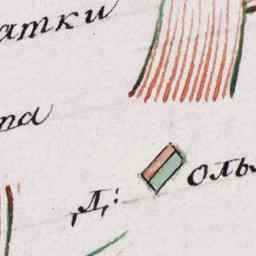 атки
та
Д: оль